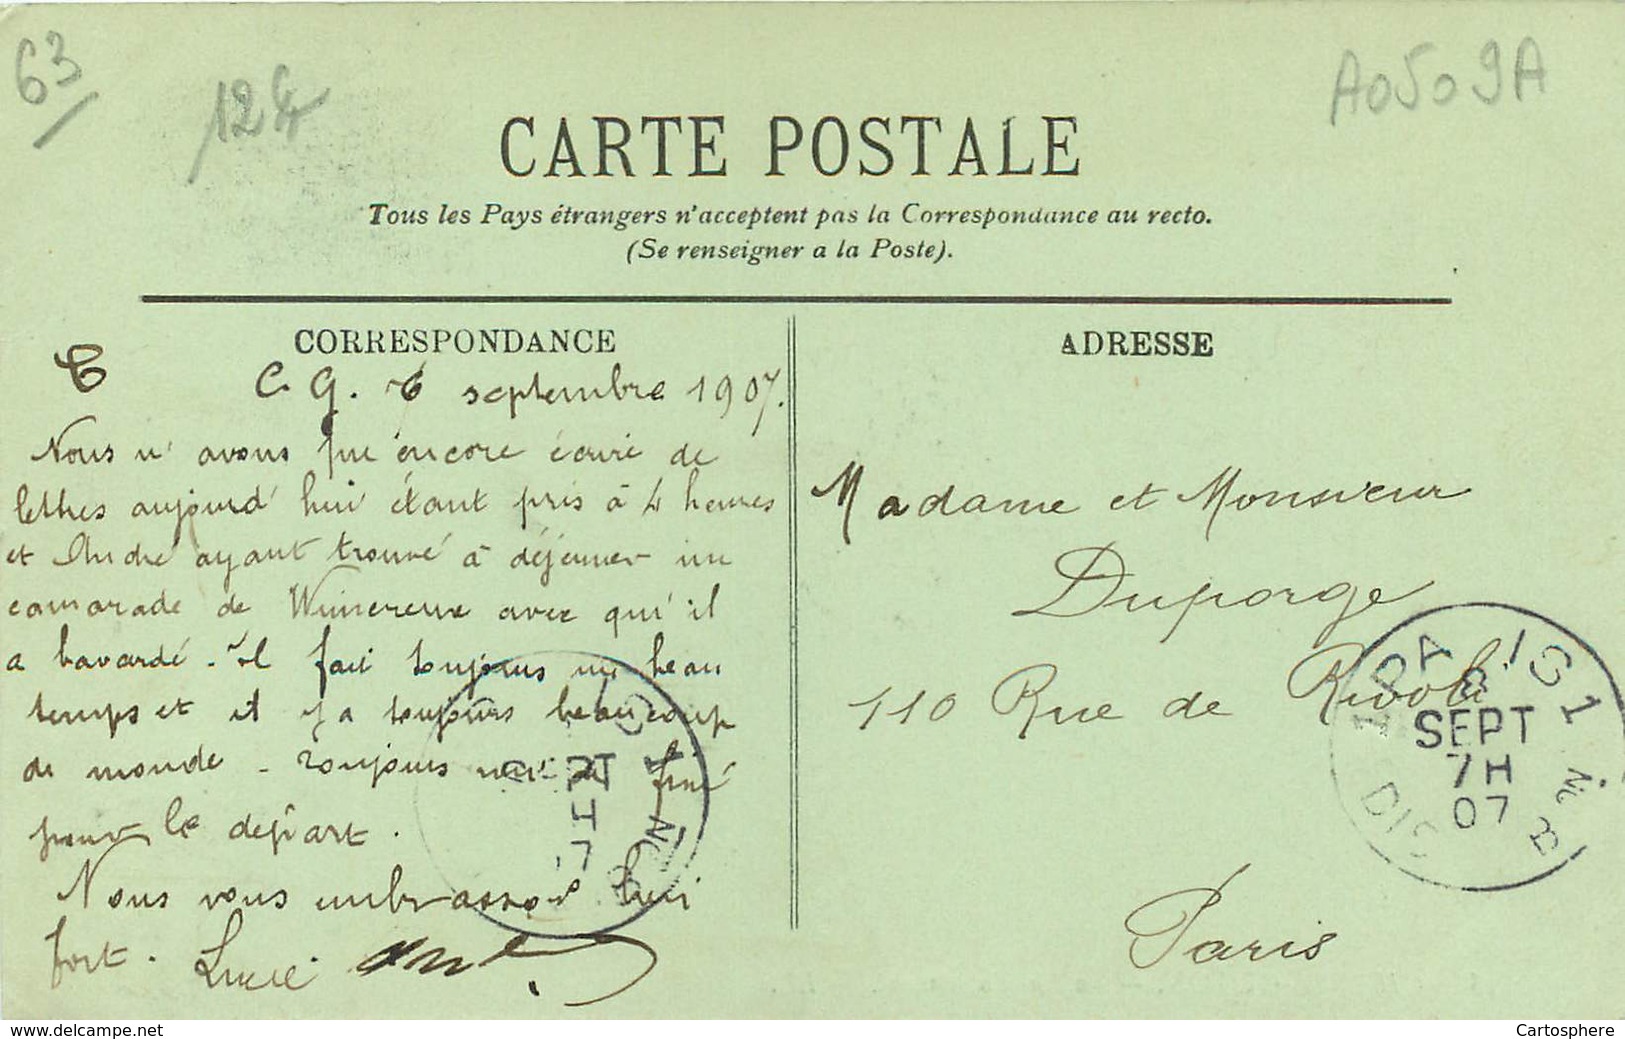 63
124
A0509A
CARTE POSTALE
Tous les Pays étrangers n'acceptent pas la Correspondance au recto.
(Se renseigner a la Poste).
CORRESPONDANCE
C G. 6 septembre 1907.
Nous n'avons pu encore écrire de
lettres aujourd'hui étant pris à 4 heures
et André ayant trouvé à déjeuner un
camarade de Wimereux avec qui il
a bavardé. Il fait toujours un beau
temps et il y a toujours beaucoup
de monde. Toujours rien de fixé
pour le départ.
Nous vous embrassons bien
fort. Lucie André
ADRESSE
Madame et Monsieur
Duporge
110 Rue de Rivoli
Paris
SEPT
7H
07
DIS
www.delcampe.net
Cartosphere